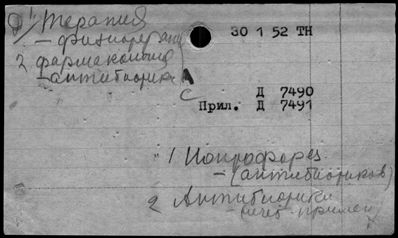 1 Терапия
- физиотерап
2 фармакотер
- антибиотик
30 1 52 ТН
А
С
Д 7490
Прил. Д 7491
1 Ионофорез
- (антибиотиков)
2 Антибиотики
- леч. примен